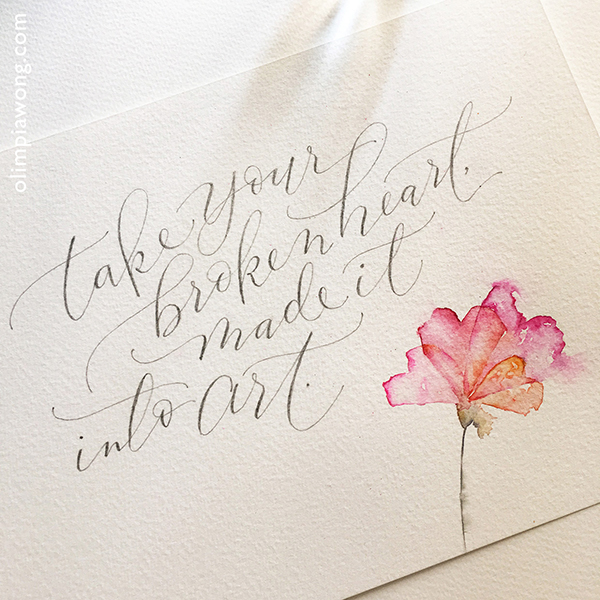 olimpiawong.com
take your
broken heart.
made it
into art.